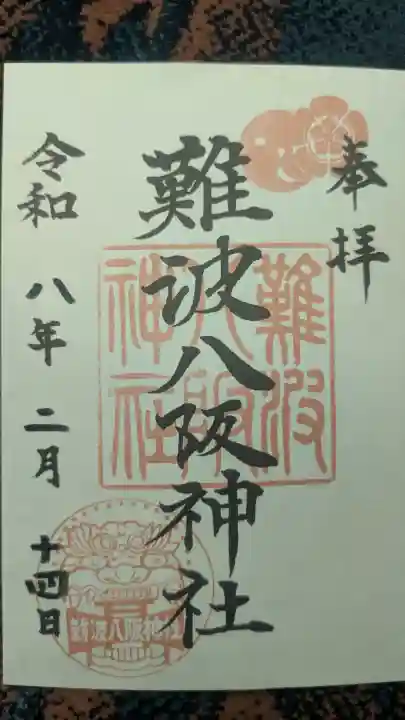 奉拝
難波八阪神社
難波
八阪
神社
令和 八年 二月 十四日
難波八阪神社